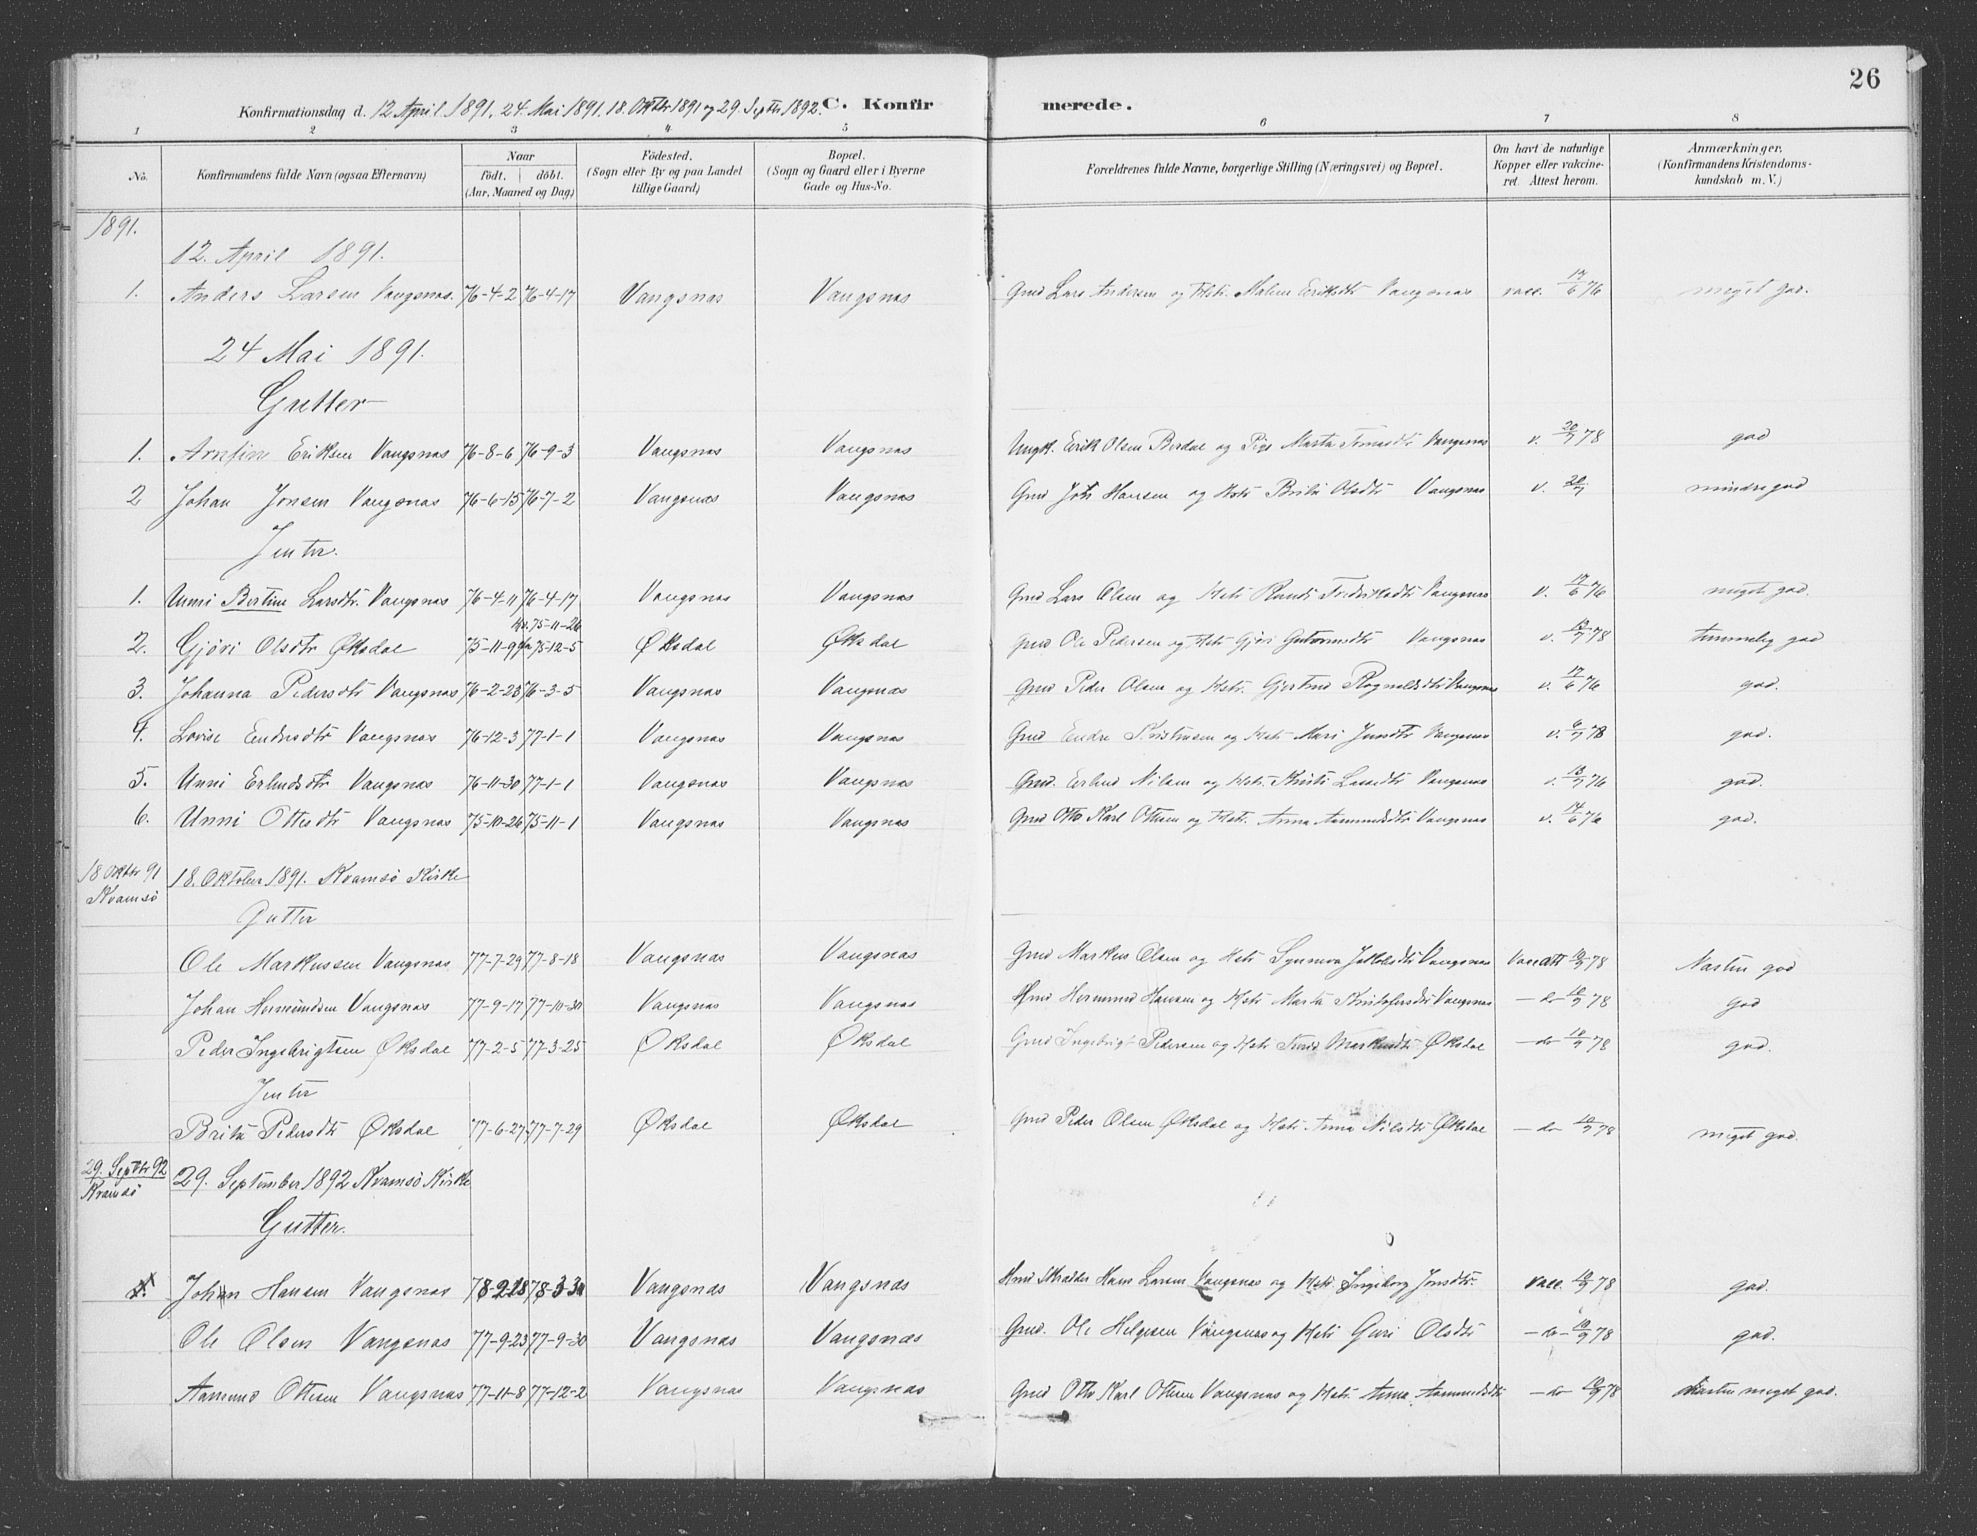 26
Konfirmationsdag d. 12 April 1891, 24 Mai 1891, 18. Oktbr 1891 og 29. Septbr 1892. C. Konfirmerede.
1 2 3 4 5 6 7 8
No. Konfirmandens fulde Navn (ogsaa Efternavn) Naar födt. döbt. (Aar, Maaned og Dag) Födested. (Sogn eller By og paa Landet tillige Gaard) Bopæl. (Sogn og Gaard eller i Byerne Gade og Hus-No. Forældrenes fulde Navne, borgerlige Stilling (Næringsvei) og Bopæl. Om havt de naturlige Kopper eller vaccineret. Attest herom. Anmærkninger. (Konfirmandens Kristendomskundskab m. V.)
1891.
12. April 1891.
1. Anders Larsen Vangsnas. 76-4-2 76-4-17 Vangsnas Vangsnas Gmd Lars Andersen og Hstr. Malene Eriksdtr Vangsnas vacc. 17/6 76 meget god.
24 Mai 1891.
Gutter
1. Arnfin Eriksen Vangsnas 76-8-6 76-9-3 Vangsnas Vangsnas Ungk. Erik Olsen Berdal og Pige Marta Vangsnas v. 20/7 78 god
2 Johan Jonsen Vangsnas 76-6-15 76-7-2 Vangsnas Vangsnas Gmd Hansen og Hstr Brita Olsdtr Vangsnas v. 20/7 mindre god
Jenter.
1. Unni Bertine Larsdtr. Vangsnas 76-4-11 76-4-17 Vangsnas Vangsnas Gmd Lars Olsen og Hstr Randi Fredriksdtr Vangsnas v. 17/6 76 meget god.
75-11-26
2. Gjöri Olsdtr Øksdal 75-11-9 75-12-5 Øksdal Øksdal Gmd Ole Pedersen og Hstr Gjöri Guttormsdtr Vangsnas v. 78 temmelig god
3. Johanna Pedersdtr Vangsnas 76-2-23 76-3-5 Vangsnas Vangsnas Gmd Peder Olsen og Hstr. Gjertrud Rognaldsdtr Vangsnas v. 17/6 76 god.
4. Lovise Endresdtr Vangsnas 76-12-3 77-1-1 Vangsnas Vangsnas Gmd Endre Kristensen og Hstr Mari Jonsdtr Vangsnas v. 6/7 78 god.
5. Unni Erlendsdtr Vangsnas 76-11-30 77-1-1 Vangsnas Vangsnas Gmd. Erlend Nilsen og Hstr. Kristi Larsdtr Vangsnas v. 13/7 76 god.
6. Unni Ottesdtr Vangsnas 75-10-26 75-11-1 Vangsnas Vangsnas Gmd Otto Karl Ottesen og Hstr. Anna Aamundsdtr Vangsnas v. 17/6 76 god.
18 Oktbr 91 Kvamsö 18. Oktober 1891. Kvamsö Kirke
Gutter
Ole Markussen Vangsnas 77-7-29 77-8-18 Vangsnas Vangsnas Gmd Markus Olsen og Hstr Synneva Jakobsdtr Vangsnas Vacc att 10/9 78 Næsten god
Johan Hermundsen Vangsnas 77-9-17 77-10-30 Vangsnas Vangsnas Hmd Hermund Hansen og Hstr Marta Kristofersdtr Vangsnas - do 10/9 78 god
Peder Ingebrigtsen Øksdal 77-2-5 77-3-25 Øksdal Øksdal Gmd Ingebrigt Pedersen og Hstr Markusdtr Øksdal - do 78 god.
Jenter
Brita Pedersdtr Øksdal 77-6-27 77-7-29 Øksdal Øksdal Gmd Peder Olsen Øksdal og Hstr. Anna Nilsdtr Øksdal - do 10/9 78 meget god.
29. Septbr 92 Kvamsö 29. September 1892 Kvamsö Kirke
Gutter.
Johan Hansen Vangsnas 78-2-18 78-3-30 Vangsnas Vangsnas Hmd Skrædder Hans Larsen Vangsnas og Hstr Ingeborg Jonsdtr. vacc. 10/9 78 god.
Ole Olsen Vangsnas 77-9-23 77-9-30 Vangsnas Vangsnas Gmd. Ole Helgesen Vangsnas og Hstr Guri Olsdtr - do - 10/9 78 god.
Aamund Ottesen Vangsnas 77-11-8 77-12-2 Vangsnas Vangsnas Gmd Otto Karl Ottesen Vangsnas og Hstr Anna Aamundsdtr - do 10/9 78 næsten meget god.